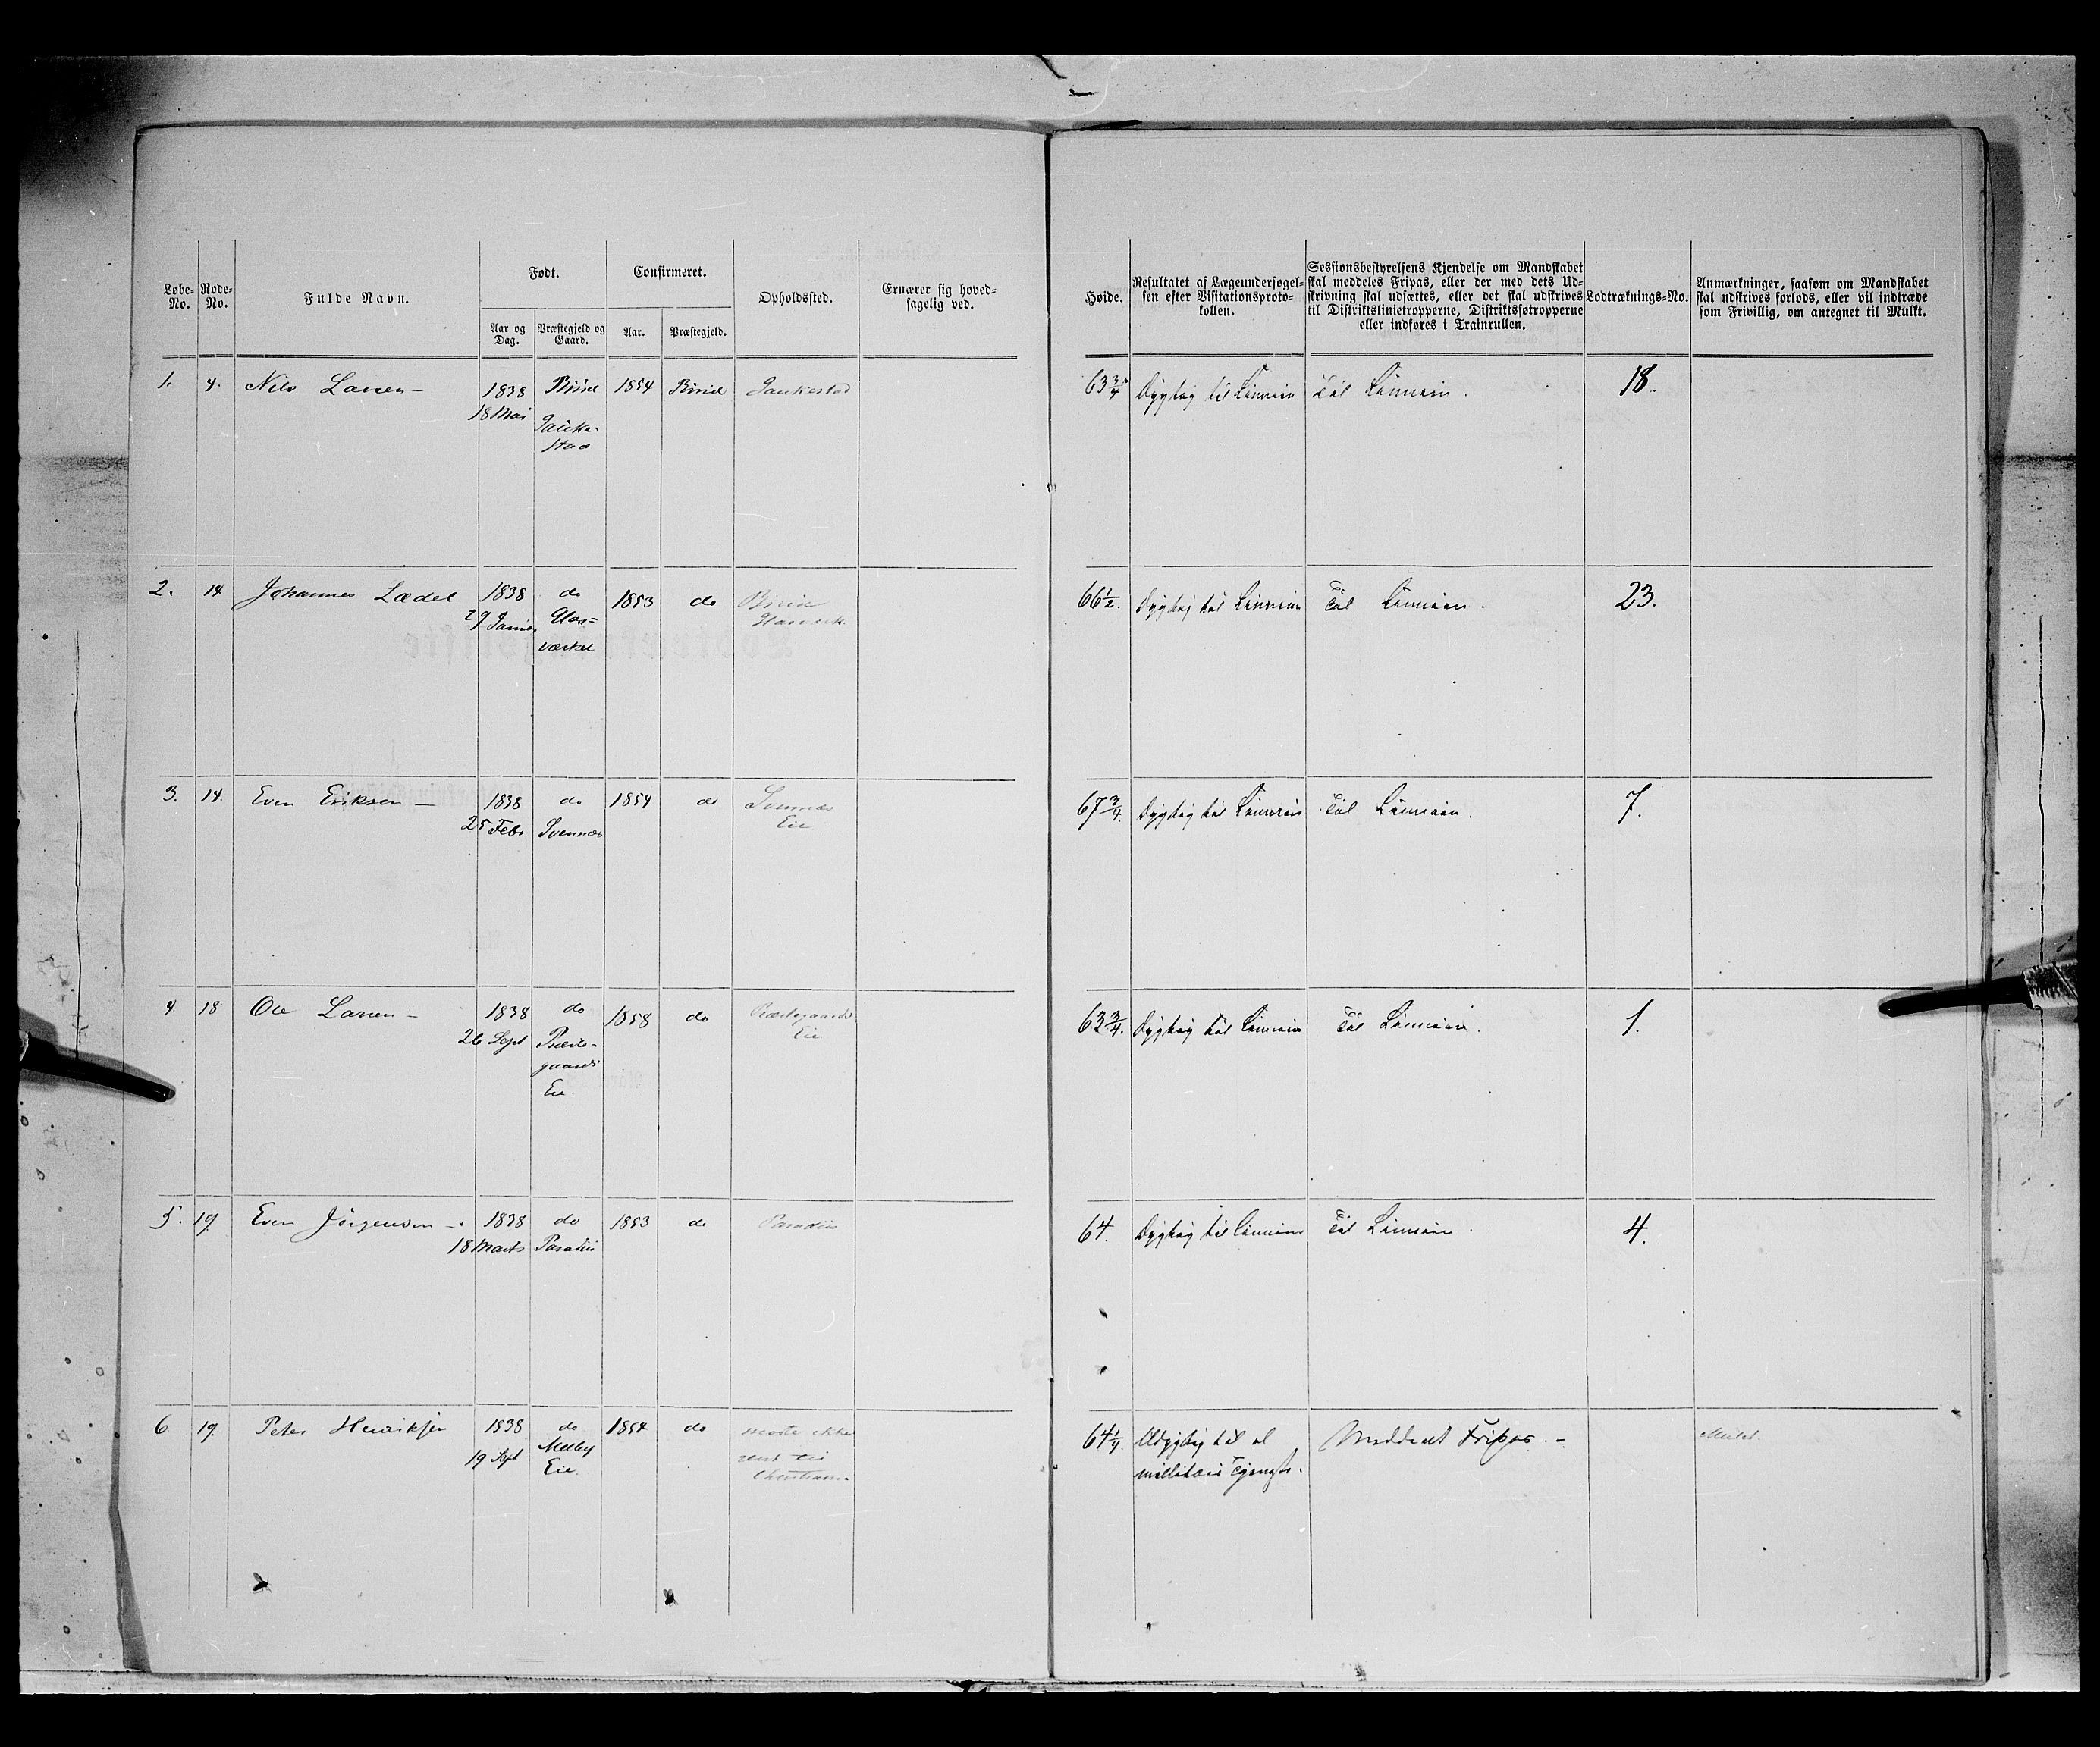 Løbe-No.
Rode-No.
Fulde Navn.
Født.
Aar og Dag.
Præstegjeld og Gaard.
Confirmeret.
Aar.
Præstegjeld.
Opholdssted.
Ernærer sig hoved-
sagelig ved.
Høide.
Resultatet af Lægeundersøgel-
sen efter Visitationsproto-
kollen.
Sessionsbestyrelsens Kjendelse om Mandskabet
skal meddeles Fripas, eller der med dets Ud-
skrivning skal udsættes, eller det skal udskrives
til Distriktslinietropperne, Distriktsfotropperne
eller indføres i Trainrullen.
Lodtræknings-No.
Anmærkninger, saasom om Mandskabet
skal udskrives forlods, eller vil indtræde
som Frivillig, om antegnet til Mulkt.
1. 4. Nils Larsen – 1838 Birid 1854 Birid
18 Mai
63 3/4 Dygtig til Linieen Til Linieen. 18.
2. 14 Johannes Lædel 1838 do 1853 do Birid
29 Glas=
værket
66 1/2. Dygtig til Linieen Til Linieen. 23.
3. 14. Even Eriksen – 1838 do 1854 do Svennæs
25 Febr Svennæs Eie
67 3/4. Dygtig til Linieen Til Linieen. 7.
4. 18 Ole Larsen – 1838 do 1858 do Præstegaards
26 Sept Præste-
gaards Eie
Eie.
63 3/4. Dygtig til Linieen Til Linieen. 1.
5. 19 Even Jörgensen – 1838 do 1853 do Paradiis
18 Marts Paradiis
64. Dygtig til Linieen Til Linieen. 4.
6. 19. Peter Henriksen 1838 do 1854 do møtte ikke
19 Sept Melby
Eie. Christiania
64 1/4. Udygtig til al Meddeelt Fripas. –
militair Tjeneste.